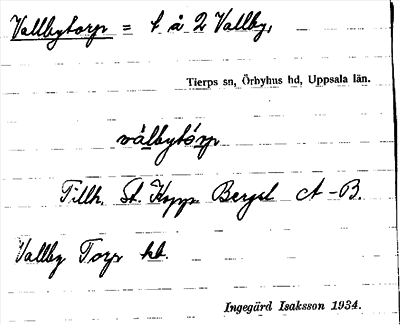 Vallbytorp = t. å 2 Vallby,
Tierps sn, Örbyhus hd, Uppsala län.
vàlbytórp
Tillh. St. Kopp. Bergsl A-B.
Vallby Torp kb.
Ingegärd Isaksson 1934.